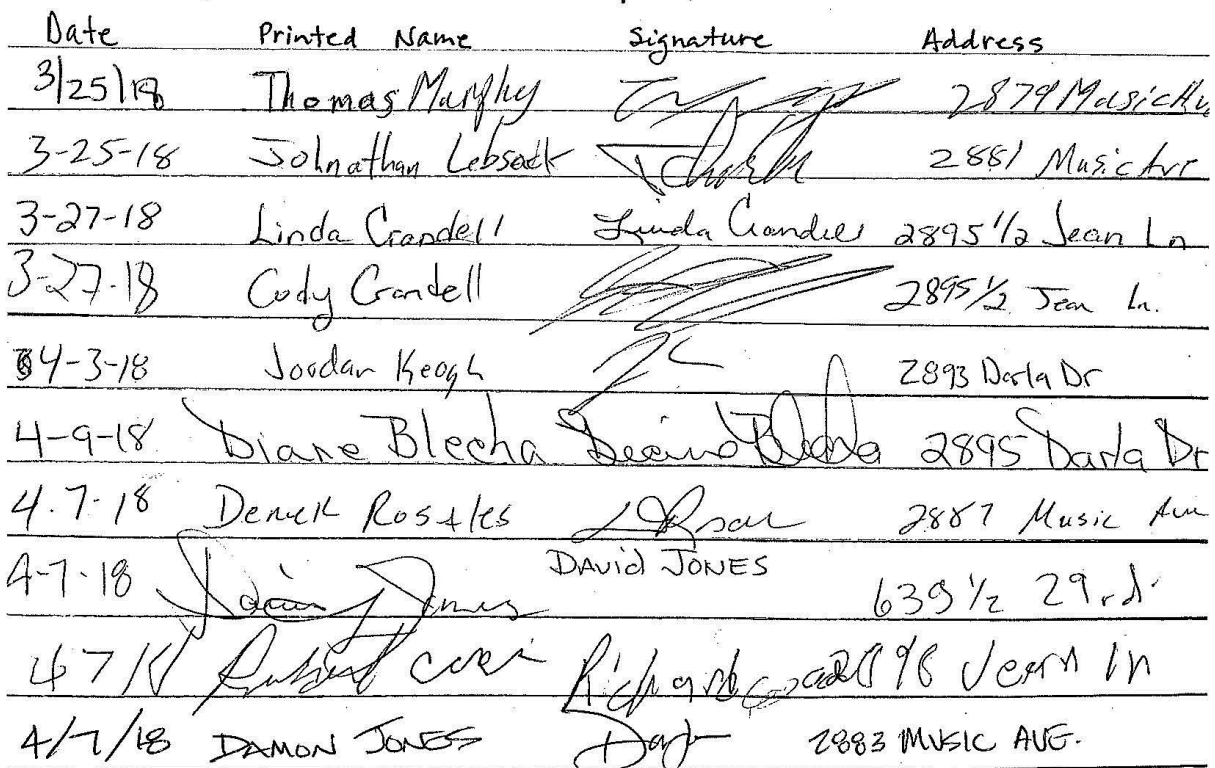 Date Printed Name Signature Address
3/25/18 Thomas Murphy 2879 Music Av
3-25-18 Johnathan Lebsack 2881 Music Ave
3-27-18 Linda Crandell Linda Crandell 2895 1/2 Jean Ln
3-27-18 Cody Crandell 2895 1/2 Jean Ln.
4-3-18 Jordan Keogh 2893 Darla Dr
4-9-18 Diane Blecha Diane Blecha 2895 Darla Dr
4-7-18 Derrek Rosales 2887 Music Ave
4-7-18 David Jones DAVID JONES 639 1/2 29 rd.
4 7 18 Richard Jean ln
4/7/18 DAMON JONES 2883 MUSIC AVE.